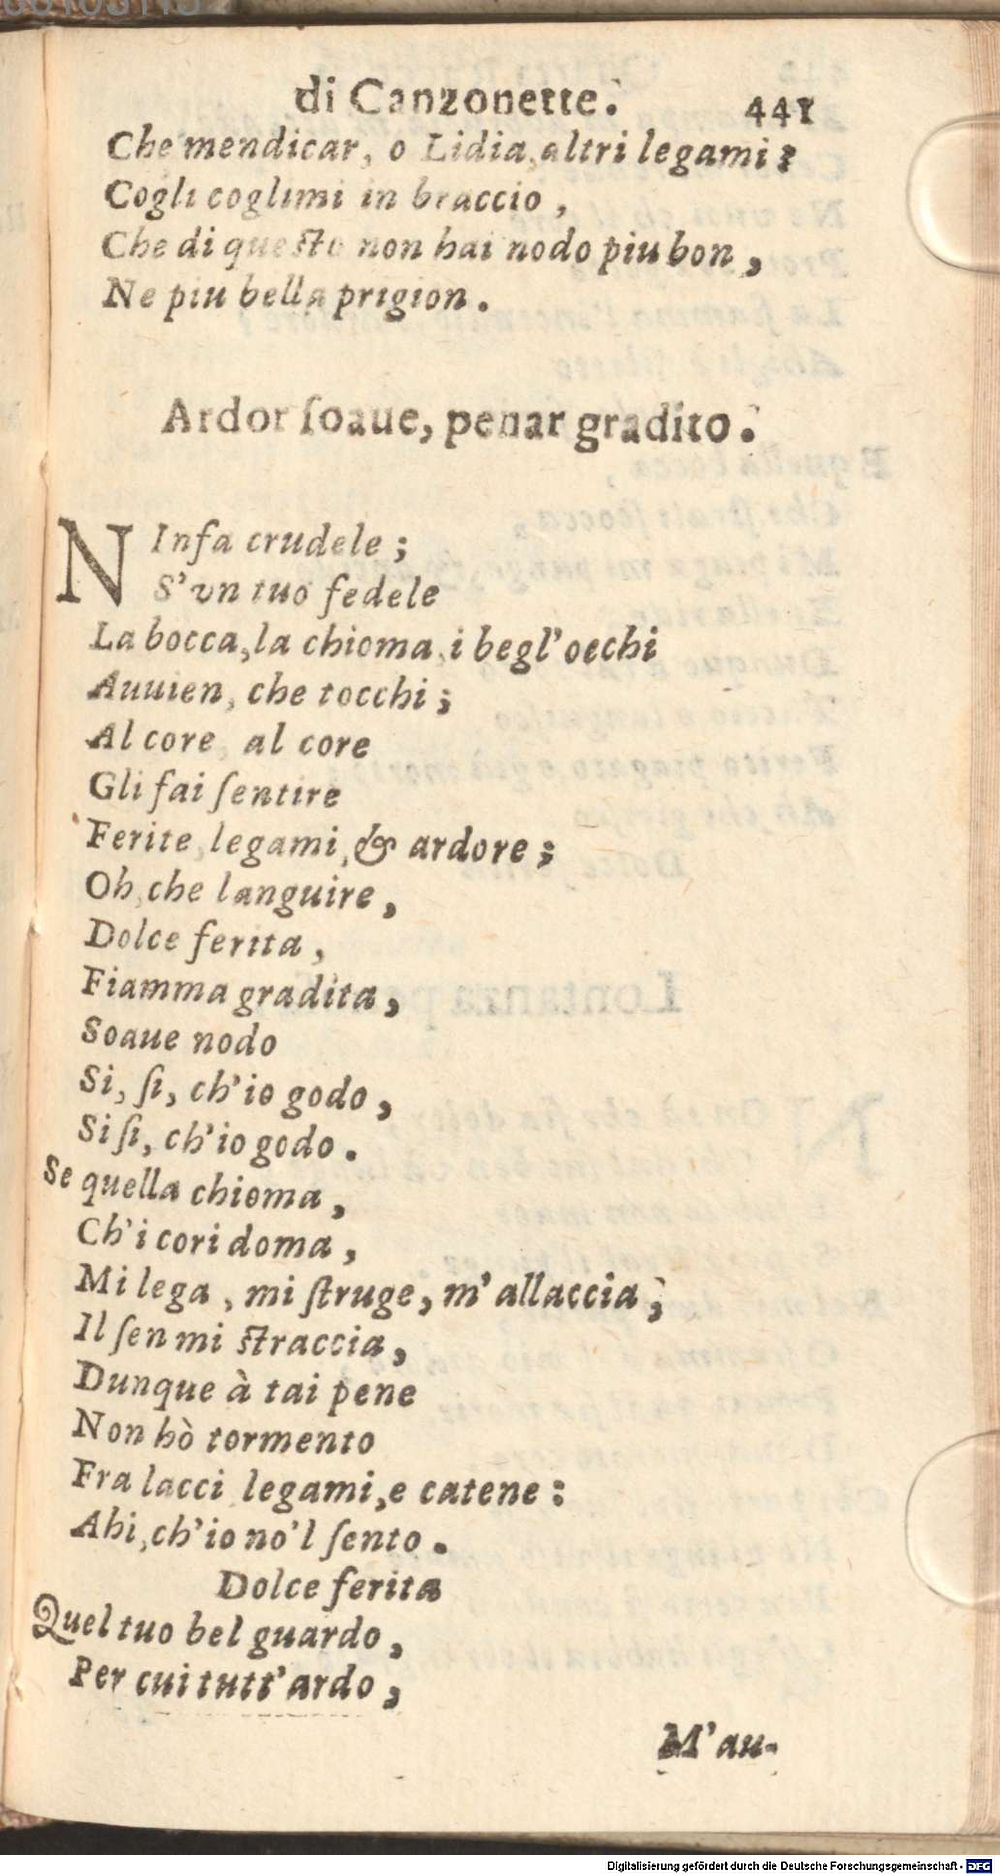 di Canzonette. 441
Che mendicar, o Lidia, altri legami?
Cogli coglimi in braccio,
Che di questo non hai nodo piu bon,
Ne piu bella prigion.
Ardor ſoaue, penar gradito.
NInfa crudele;
S'vn tuo fedele
La bocca, la chioma, i begl'occhi
Auuien, che tocchi;
Al core, al core
Gli fai ſentire
Ferite, legami, & ardore;
Oh, che languire,
Dolce ferita,
Fiamma gradita,
Soaue nodo
Si, ſi, ch'io godo,
Si ſi, ch'io godo.
Se quella chioma,
Ch'i cori doma,
Mi lega, mi ſtruge, m'allaccia,
Il ſen mi ſtraccia,
Dunque à tai pene
Non hò tormento
Fra lacci legami, e catene:
Ahi, ch'io no'l ſento.
Dolce ferita
Quel tuo bel guardo,
Per cui tutt'ardo,
M'au-
Digitalisierung gefördert durch die Deutsche Forschungsgemeinschaft - DFG